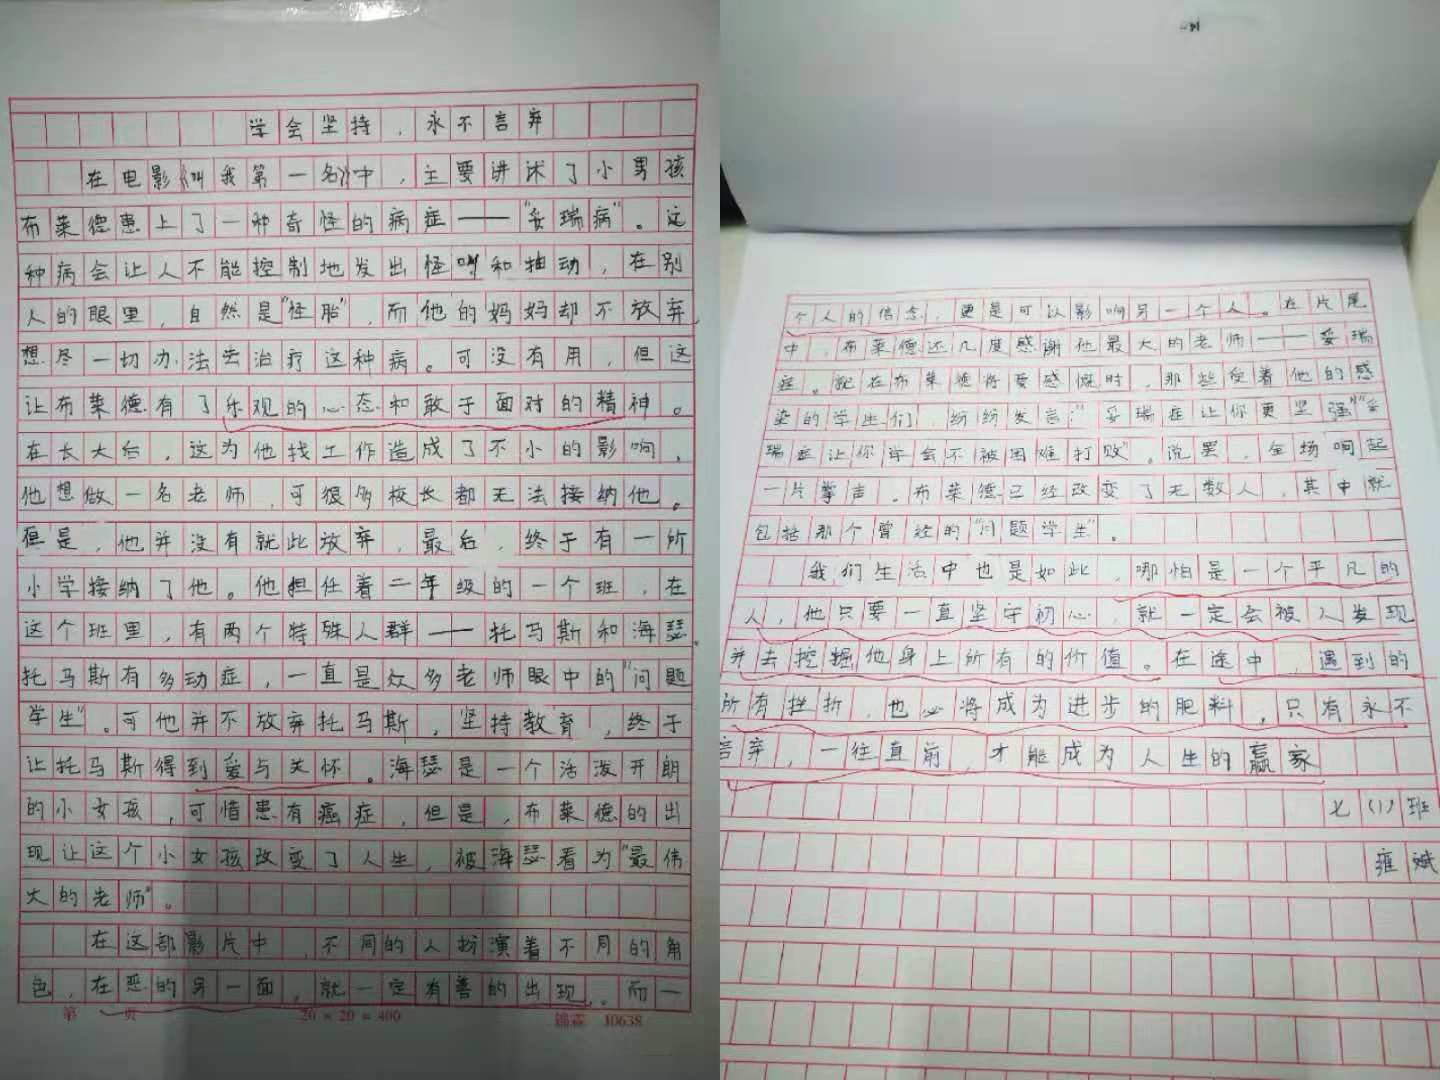 学会坚持，永不言弃
在电影《叫我第一名》中，主要讲述了小男孩
布莱德患上了一种奇怪的病症——“妥瑞病”。这
种病会让人不能控制地发出怪叫和抽动，在别
人的眼里，自然是“怪胎”，而他的妈妈却不放弃，
想尽一切办法去治疗这种病。可没有用，但这
让布莱德有了乐观的心态和敢于面对的精神。
在长大后，这为他找工作造成了不小的影响，
他想做一名老师，可很多校长都无法接纳他。
但是，他并没有就此放弃，最后，终于有一所
小学接纳了他。他担任着二年级的一个班，在
这个班里，有两个特殊人群——托马斯和海瑟。
托马斯有多动症，一直是众多老师眼中的“问题
学生”。可他并不放弃托马斯，坚持教育，终于
让托马斯得到爱与关怀。海瑟是一个活泼开朗
的小女孩，可惜患有癌症，但是，布莱德的出
现让这个小女孩改变了人生，被海瑟看为“最伟
大的老师”。
在这部影片中，不同的人扮演着不同的角
色，在恶的另一面，就一定有善的出现。而一
第 页 20×20=400 锦霖 10638
个人的信念，更是可以影响另一个人。在片尾
中，布莱德还几度感谢他最大的老师——妥瑞
症。就在布莱德将要感慨时，那些受着他的感
染的学生们，纷纷发言：“妥瑞症让你更坚强”“妥
瑞症让你学会不被困难打败”。说罢，全场响起
一片掌声。布莱德已经改变了无数人，其中就
包括那个曾经的“问题学生”。
我们生活中也是如此，哪怕是一个平凡的
人，他只要一直坚守初心，就一定会被人发现
并去挖掘他身上所有的价值。在途中，遇到的
所有挫折，也必将成为进步的肥料，只有永不
言弃，一往直前，才能成为人生的赢家
七（1）班
雍斌